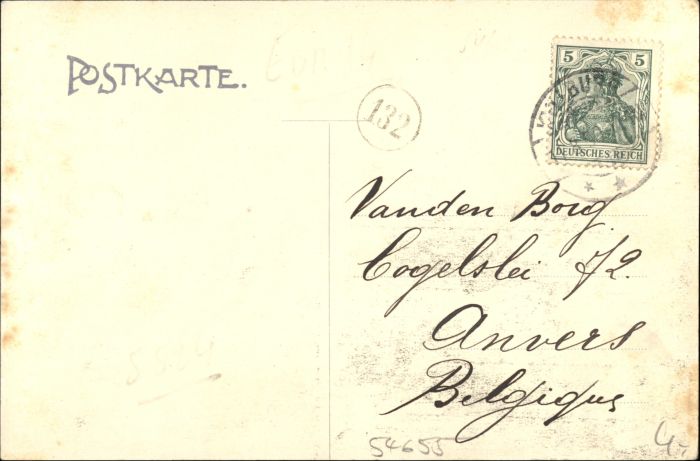 POSTKARTE.
132
5 5
DEUTSCHES REICH
Vanden Borg
Cogelslei 72.
Anvers
Belgique
54655
4,-